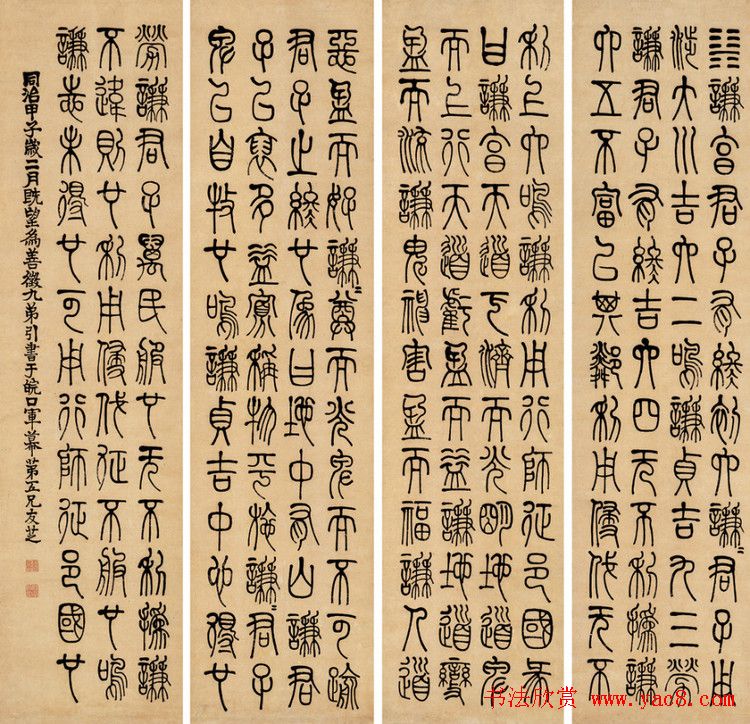 ䷎謙亯君子有終初六謙=君子用
涉大川吉六二鳴謙貞吉九三勞
謙君子有終吉六四无不利撝謙
六五不富以其鄰利用侵伐无不
利上六鳴謙利用行師征邑國彖
曰謙亯天道下濟而光明地道卑
而上行天道虧盈而益謙地道變
盈而流謙鬼神害盈而福謙人道
惡盈而好謙=尊而光卑而不可踰
君子之終也象曰地中有山謙君
子以裒多益寡稱物平施謙=君子
卑以自牧也鳴謙貞吉中心得也
勞謙君子萬民服也无不利撝謙
不違則也利用侵伐征不服也鳴
謙志未得也可用行師征邑國也
同治甲子歲二月既望為善徵九弟引書于皖口軍幕弟五兄友芝
书法欣赏 www.yac8.com